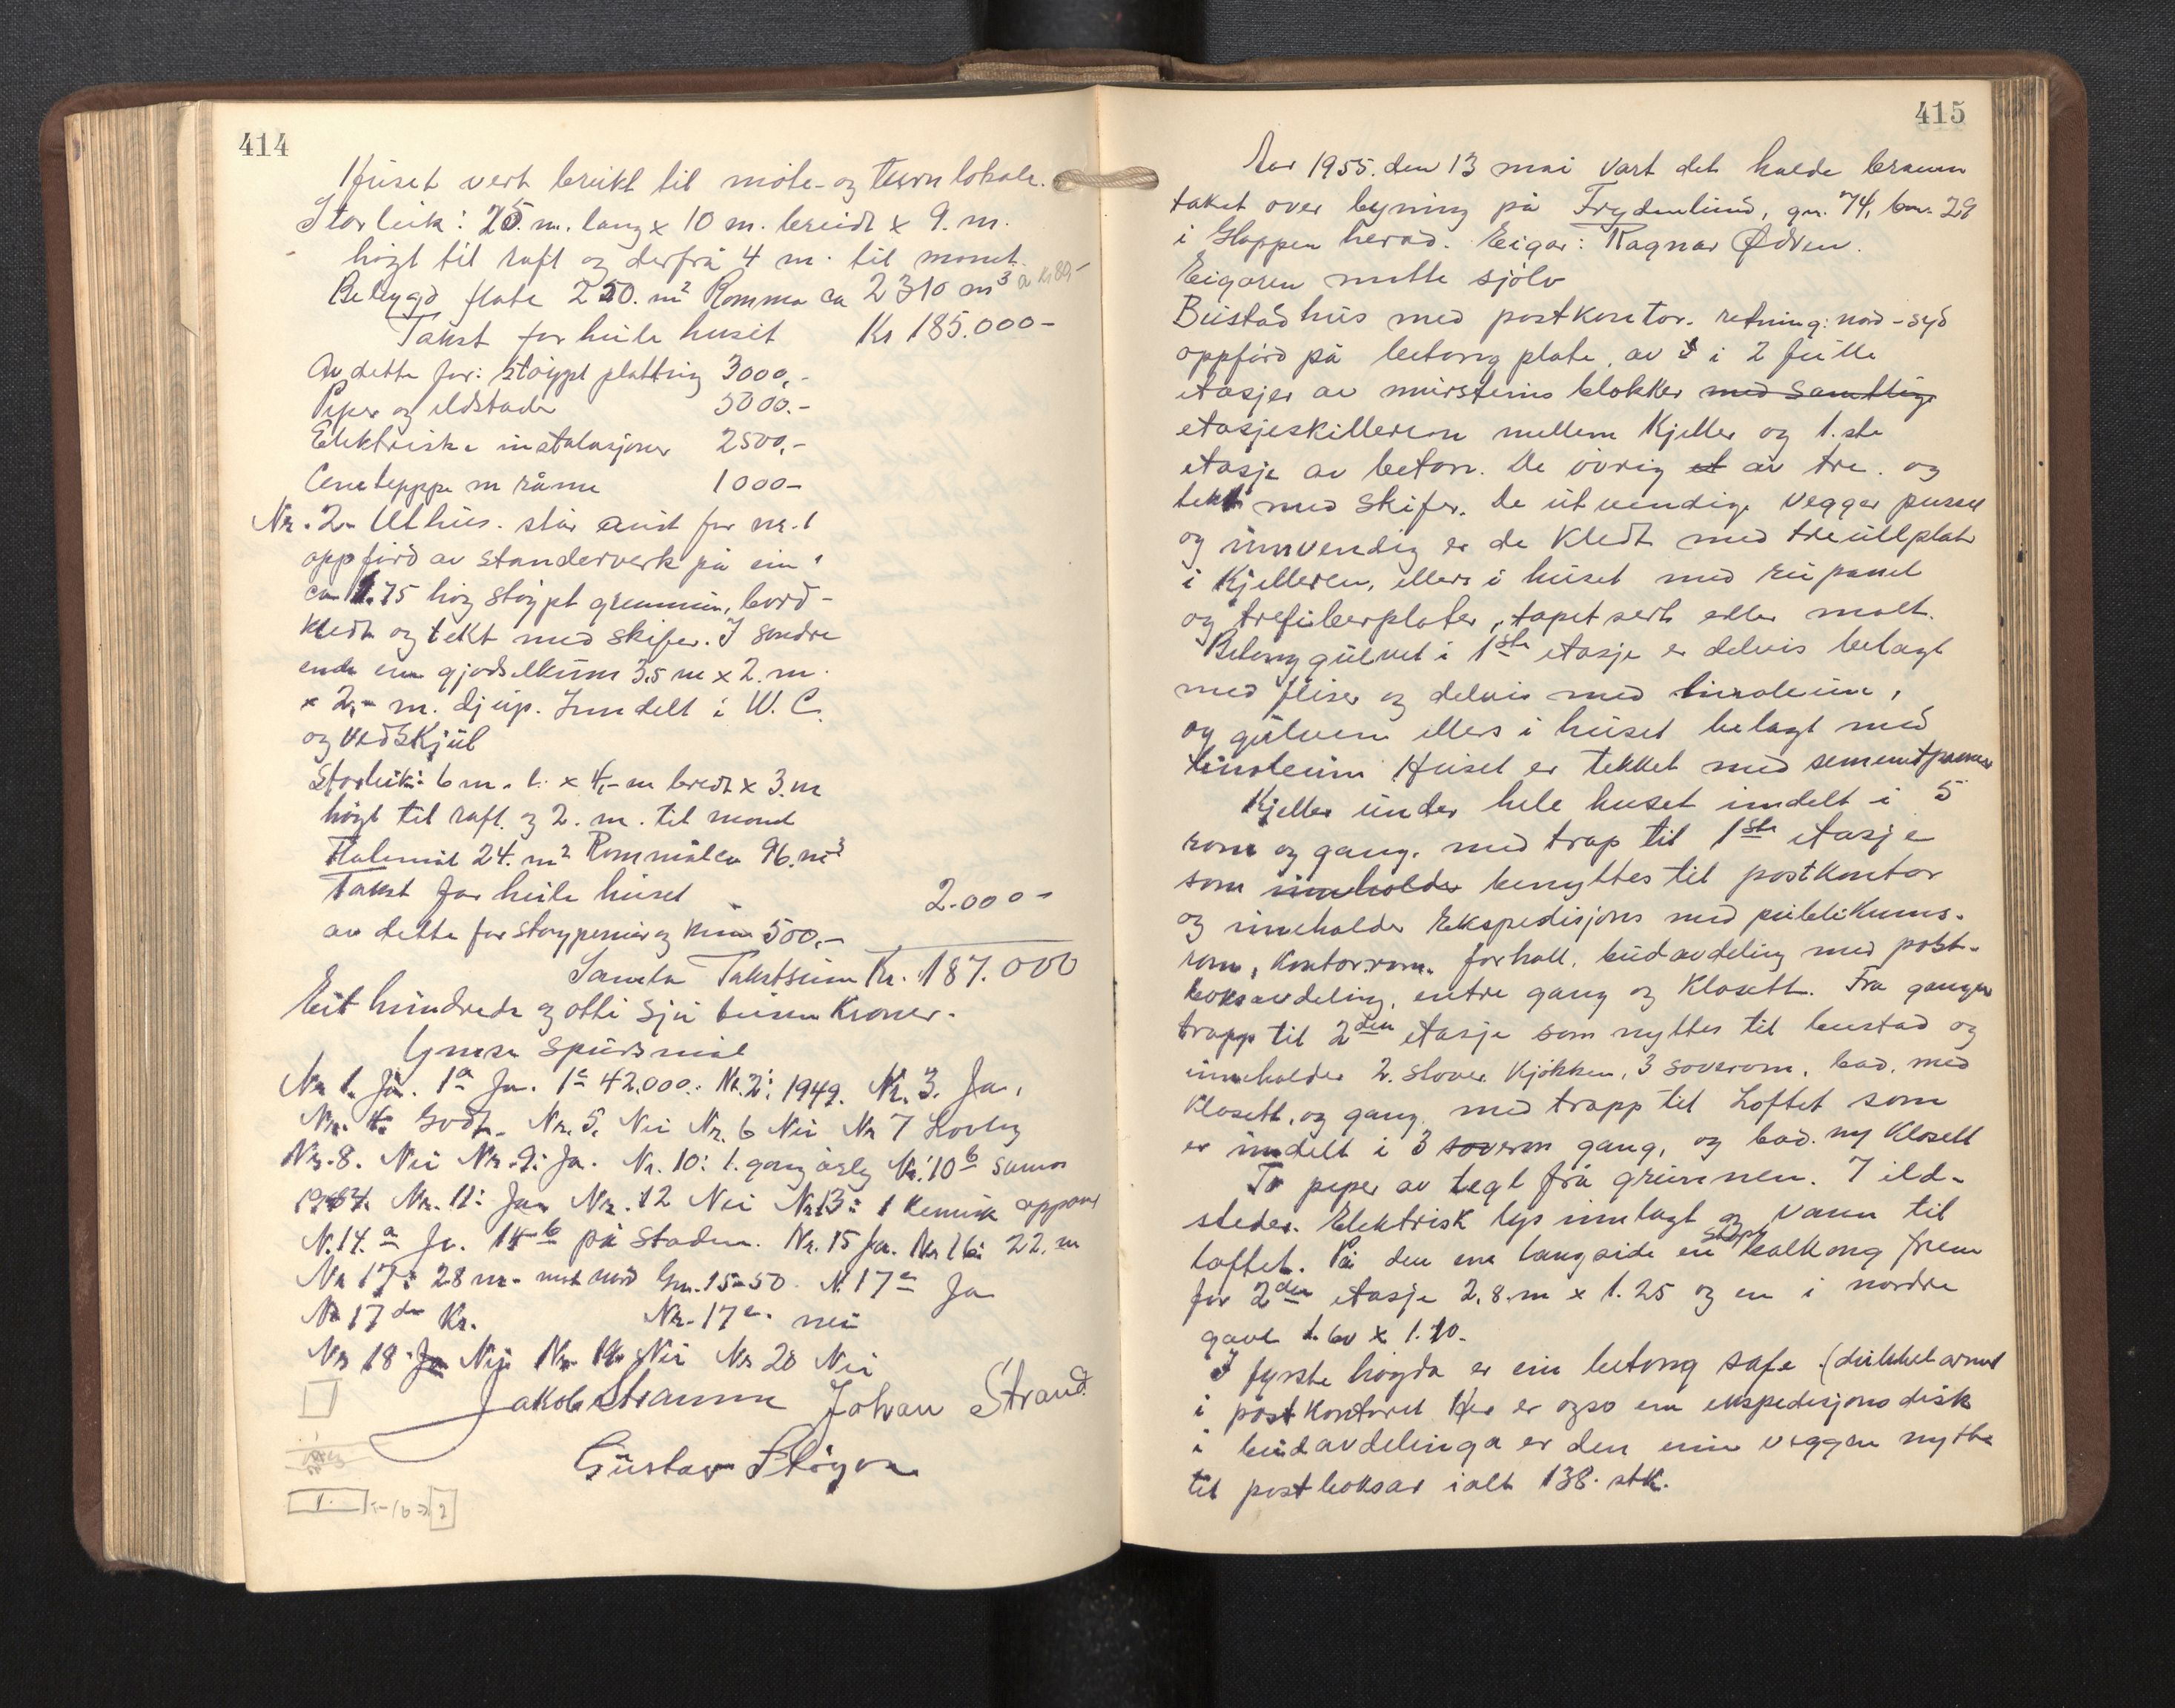 414
Huset vert brukt til møte- og turnlokale.
Storleik: 25. m. lang x 10 m. breidt x 9. m.
høgt til raft og derfrå 4 m. til mønet.
Bebygd flate 250. m² Romma ca 2310 m³ a kr 80,-
Takst for heile huset Kr 185.000-
Av dette for: støypt platting 3000,-
Piper og eldstader 5000.-
Elektriske instalasjoner 2500,-
Cenetepppe m råme 1000-
Nr. 2. Uthus. står aust for nr. 1
oppförd av standerverk på ein
ca 1.75 høg støypt grunnmur, bord-
kledt og tekt med skifer. I søndre
ende ein gjødselkum 3,5 m x 2. m.
x 2,- m. djup. Inndelt i W. C.
og vedskjul
Storleik: 6 m. l. x 4,- m bredt x 3. m
høgt til raft. og 2. m. til møned
Flatemål 24. m² Rommål ca 96. m³
Takst for heile huset 2.000-
av dette for støypemur og kum 500,-
Samla Takstsum Kr. 187.000
Eit hundrede og otti sju tusen Kroner.
Ymse spursmål
Nr 1. Ja. 1a Ja. 1c 42.000. Nr. 2: 1949. Nr. 3. Ja.
Nr. 4. Godt. Nr. 5. Nei Nr. 6 Nei Nr 7 Lovleg
Nr. 8. Nei Nr. 9: Ja. Nr. 10: 1. gang årleg Nr. 10b
Nr. 11: Ja Nr. 12 Nei Nr 13: 1 kemisk apparat
N. 14. a Ja. 14 b på staden. Nr. 15 Ja. Nr 16: 22. m
Nr 17: 28 m. mot nord Gn. 15-50. N. 17 c Ja
Nr 17 d Kr. Nr. 17 e. nei
Nr 18 Ja Nei Nr. 19. Nei Nr 20 Nei
Jakob Straume Johan Strand
Gustav
1. 16 2
415
Aar 1955. den 13 mai vart det halde brann
takst over bygning på Frydenlund, gn. 74, bnr. 29
i Gloppen herad. Eigar: Ragnar Ødven.
Eigaren møtte sjølv
Bustadhus med postkontor. retning: nord-syd
oppförd på betong plate, av i 2 fulle
etasjer av mursteins blokker med samtlige
etasjeskilleren mellem Kjeller og 1.ste
etasje av beton. De øvrig et av tre. og
tekt med skifer. De utvendige vegger pusset
og innvendig er de kledt med treullplater
i Kjelleren, ellers i huset med rupanel
og trefiberplater, tapetsert eller malt.
Betonggulvet i 1ste etasje er delvis belagt
med fliser og delvis med linoleum,
og gulven ellers i huset belagt med
linoleum Huset er tekket med sementpanner
Kjeller under hele huset inndelt i 5
rom og gang. med trap til 1ste etasje
som inneholder benyttes til postkontor
og inneholder Ekspedisjons med publikums-
rom, kontorrom. forhall, budavdeling med post-
boksavdeling, entre gang og Klosett. Fra gangen
trapp til 2den etasje som nyttes til bustad og
inneholder 2. stover kjøkken, 3 soverom, bad. med
Klosett. og gang. med trapp til Loftet som
er inndelt i 3 soverom gang, og bad. m/ Klosett
To piper av tegl frå grunnen. 7 ild-
steder. Elektrisk lys innlagt og vann til
loftet. På den ene langside en støpt balkong frem
for 2den etasje 2.8. m x 1.25 og en i nordre
gavl 1.60 x 1.10.
I fyrste høgda er ein betong safe (dubbelarmert
i postkontoret Her er ogso ein ekspedisjons disk
i budavdelinga er den eine veggen nytta
til postboksar ialt 138. stk.